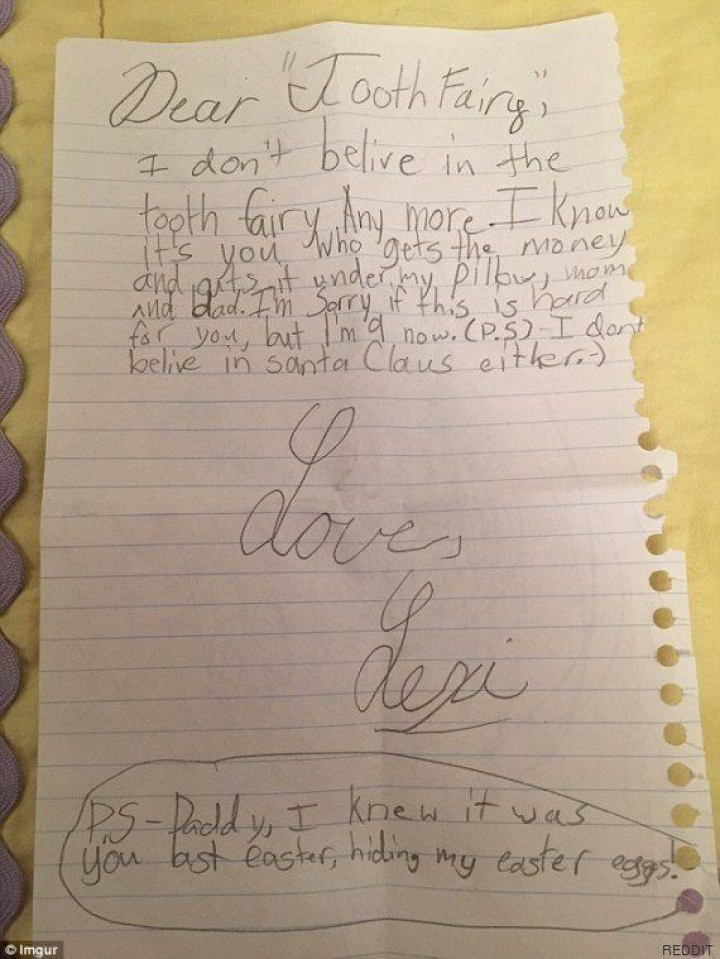 Dear "Tooth Fairy",
I don't belive in the
tooth fairy Any more. I know
it's you who gets the money
and puts it under my pillow, mom
and dad. I'm sorry if this is hard
for you, but I'm 9 now. (P.S)-I dont
belive in santa Claus either.-)
Love,
Lexi
P.S - Daddy, I knew it was
you last easter, hiding my easter eggs!
© Imgur
REDDIT